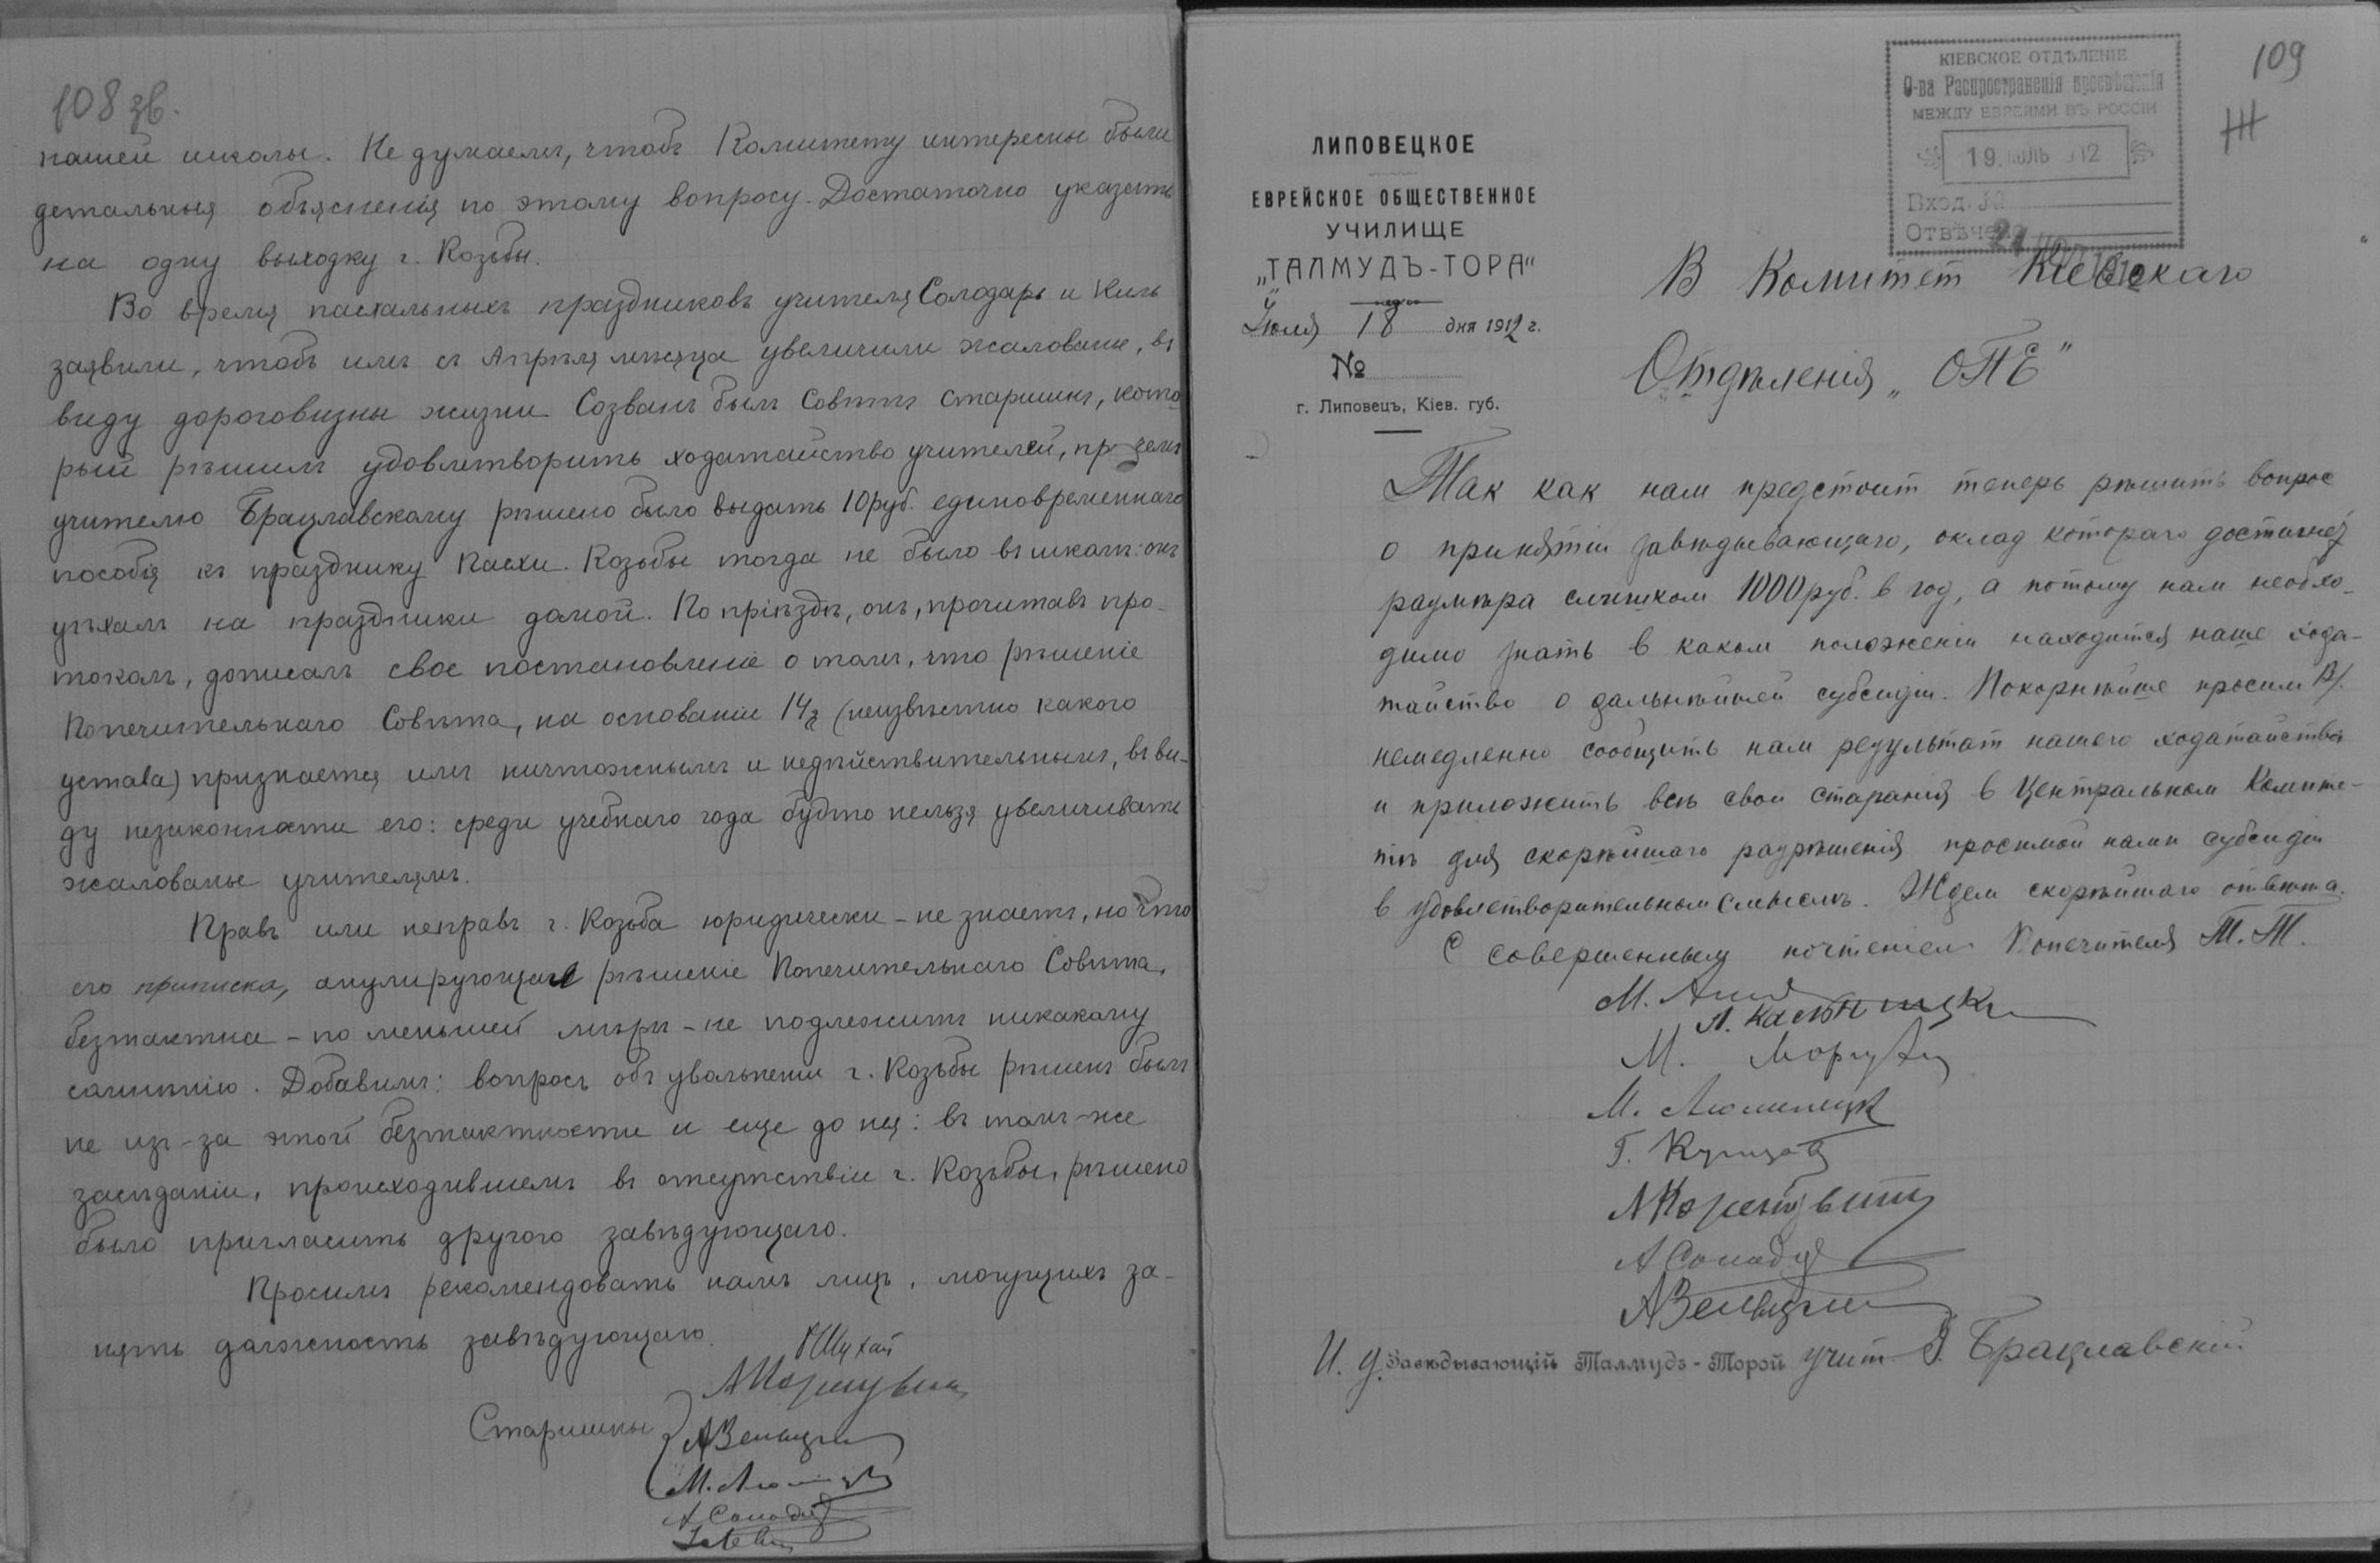 108 зв.
нашей школы. Не думаемъ, чтобъ Комитету интересны были
детальныя объясненія по этому вопросу. Достаточно указать
на одну выходку г. Козьбы.
Во время пасхальныхъ праздниковъ учителя Солодарь и Киль
заявили, чтобъ имъ съ Апрѣля мѣсяца увеличили жалованье, въ
виду дороговизны жизни. Созванъ былъ Совѣтъ старшинъ, кото
рый рѣшилъ удовлетворить ходатайство учителей, причемъ
учителю Брацлавскому рѣшено было выдать 10 руб. единовременнаго
пособія къ празднику Пасхи. Козьбы тогда не было въ школѣ: онъ
уѣхалъ на праздники домой. По пріѣздѣ, онъ, прочитавъ про-
токолъ, дописалъ свое постановленіе о томъ, что рѣшеніе
Попечительнаго Совѣта, на основаніи 14 § (неизвѣстно какого
устава) признается имъ ничтожнымъ и недѣйствительнымъ, въ ви-
ду незаконности его: среди учебнаго года будто нельзя увеличивать
жалованье учителямъ.
Правъ или неправъ г. Козьба юридически - не знаемъ, но что
его приписка, анулирующая рѣшеніе Попечительнаго Совѣта,
безтактна - по меньшей мѣрѣ - не подлежитъ никакому
сомнѣнію. Добавимъ: вопросъ объ увольненіи г. Козьбы рѣшенъ былъ
не изъ-за этой безтактности и еще до нея: въ томъ-же
засѣданіи, происходившемъ въ отсутствіи г. Козьбы, рѣшено
было пригласить другого завѣдующаго.
Просимъ рекомендовать намъ лицъ, могущихъ за-
нять должность завѣдующаго.
Старшины
109
КІЕВСКОЕ ОТДѢЛЕНІЕ
О-ва Распространенія просвѣщенія
МЕЖДУ ЕВРЕЯМИ ВЪ РОССІИ
19 ІЮЛЬ 912
Вход. №
Отвѣчено
ЛИПОВЕЦКОЕ
ЕВРЕЙСКОЕ ОБЩЕСТВЕННОЕ
УЧИЛИЩЕ
„ТАЛМУДЪ-ТОРА“
Іюля 18 дня 1912 г.
№
г. Липовецъ, Кіев. губ.
В Комитет Кіевскаго
Отдѣленія „ОПЕ“
Так как нам предстоит теперь рѣшить вопрос
о принятіи завѣдывающаго, оклад котораго достигнет
размѣра слишком 1000 руб. в год, а потому нам необхо-
димо знать в каком положеніи находится наше хода-
тайство о дальнѣйшей субсидіи. Покорнѣйше просим В/.
немедленно сообщить нам результат нашего ходатайства
и приложить всѣ свои старанія в Центральном Комите-
тѣ для скорѣйшаго разрѣшенія просимой нами субсидіи
в удовлетворительном смыслѣ. Ждем скорѣйшаго отвѣта.
С совершенным почтеніем Попечителя Т.Т.
И. у. Завѣдывающій Талмудъ-Торой учит. Брацлавскій